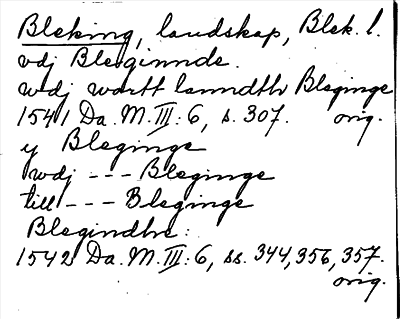 Bleking, landskap, Blek. l.
vdj Bleginnde.
wdj wartt lanndth Bleginge
1541 Da. M. III: 6, s. 307. orig.
y Bleginge
wdj --- Bleginge
till --- Bleginge
Blegindhe:
1542 Da. M. III: 6, ss. 344, 356, 357.
orig.